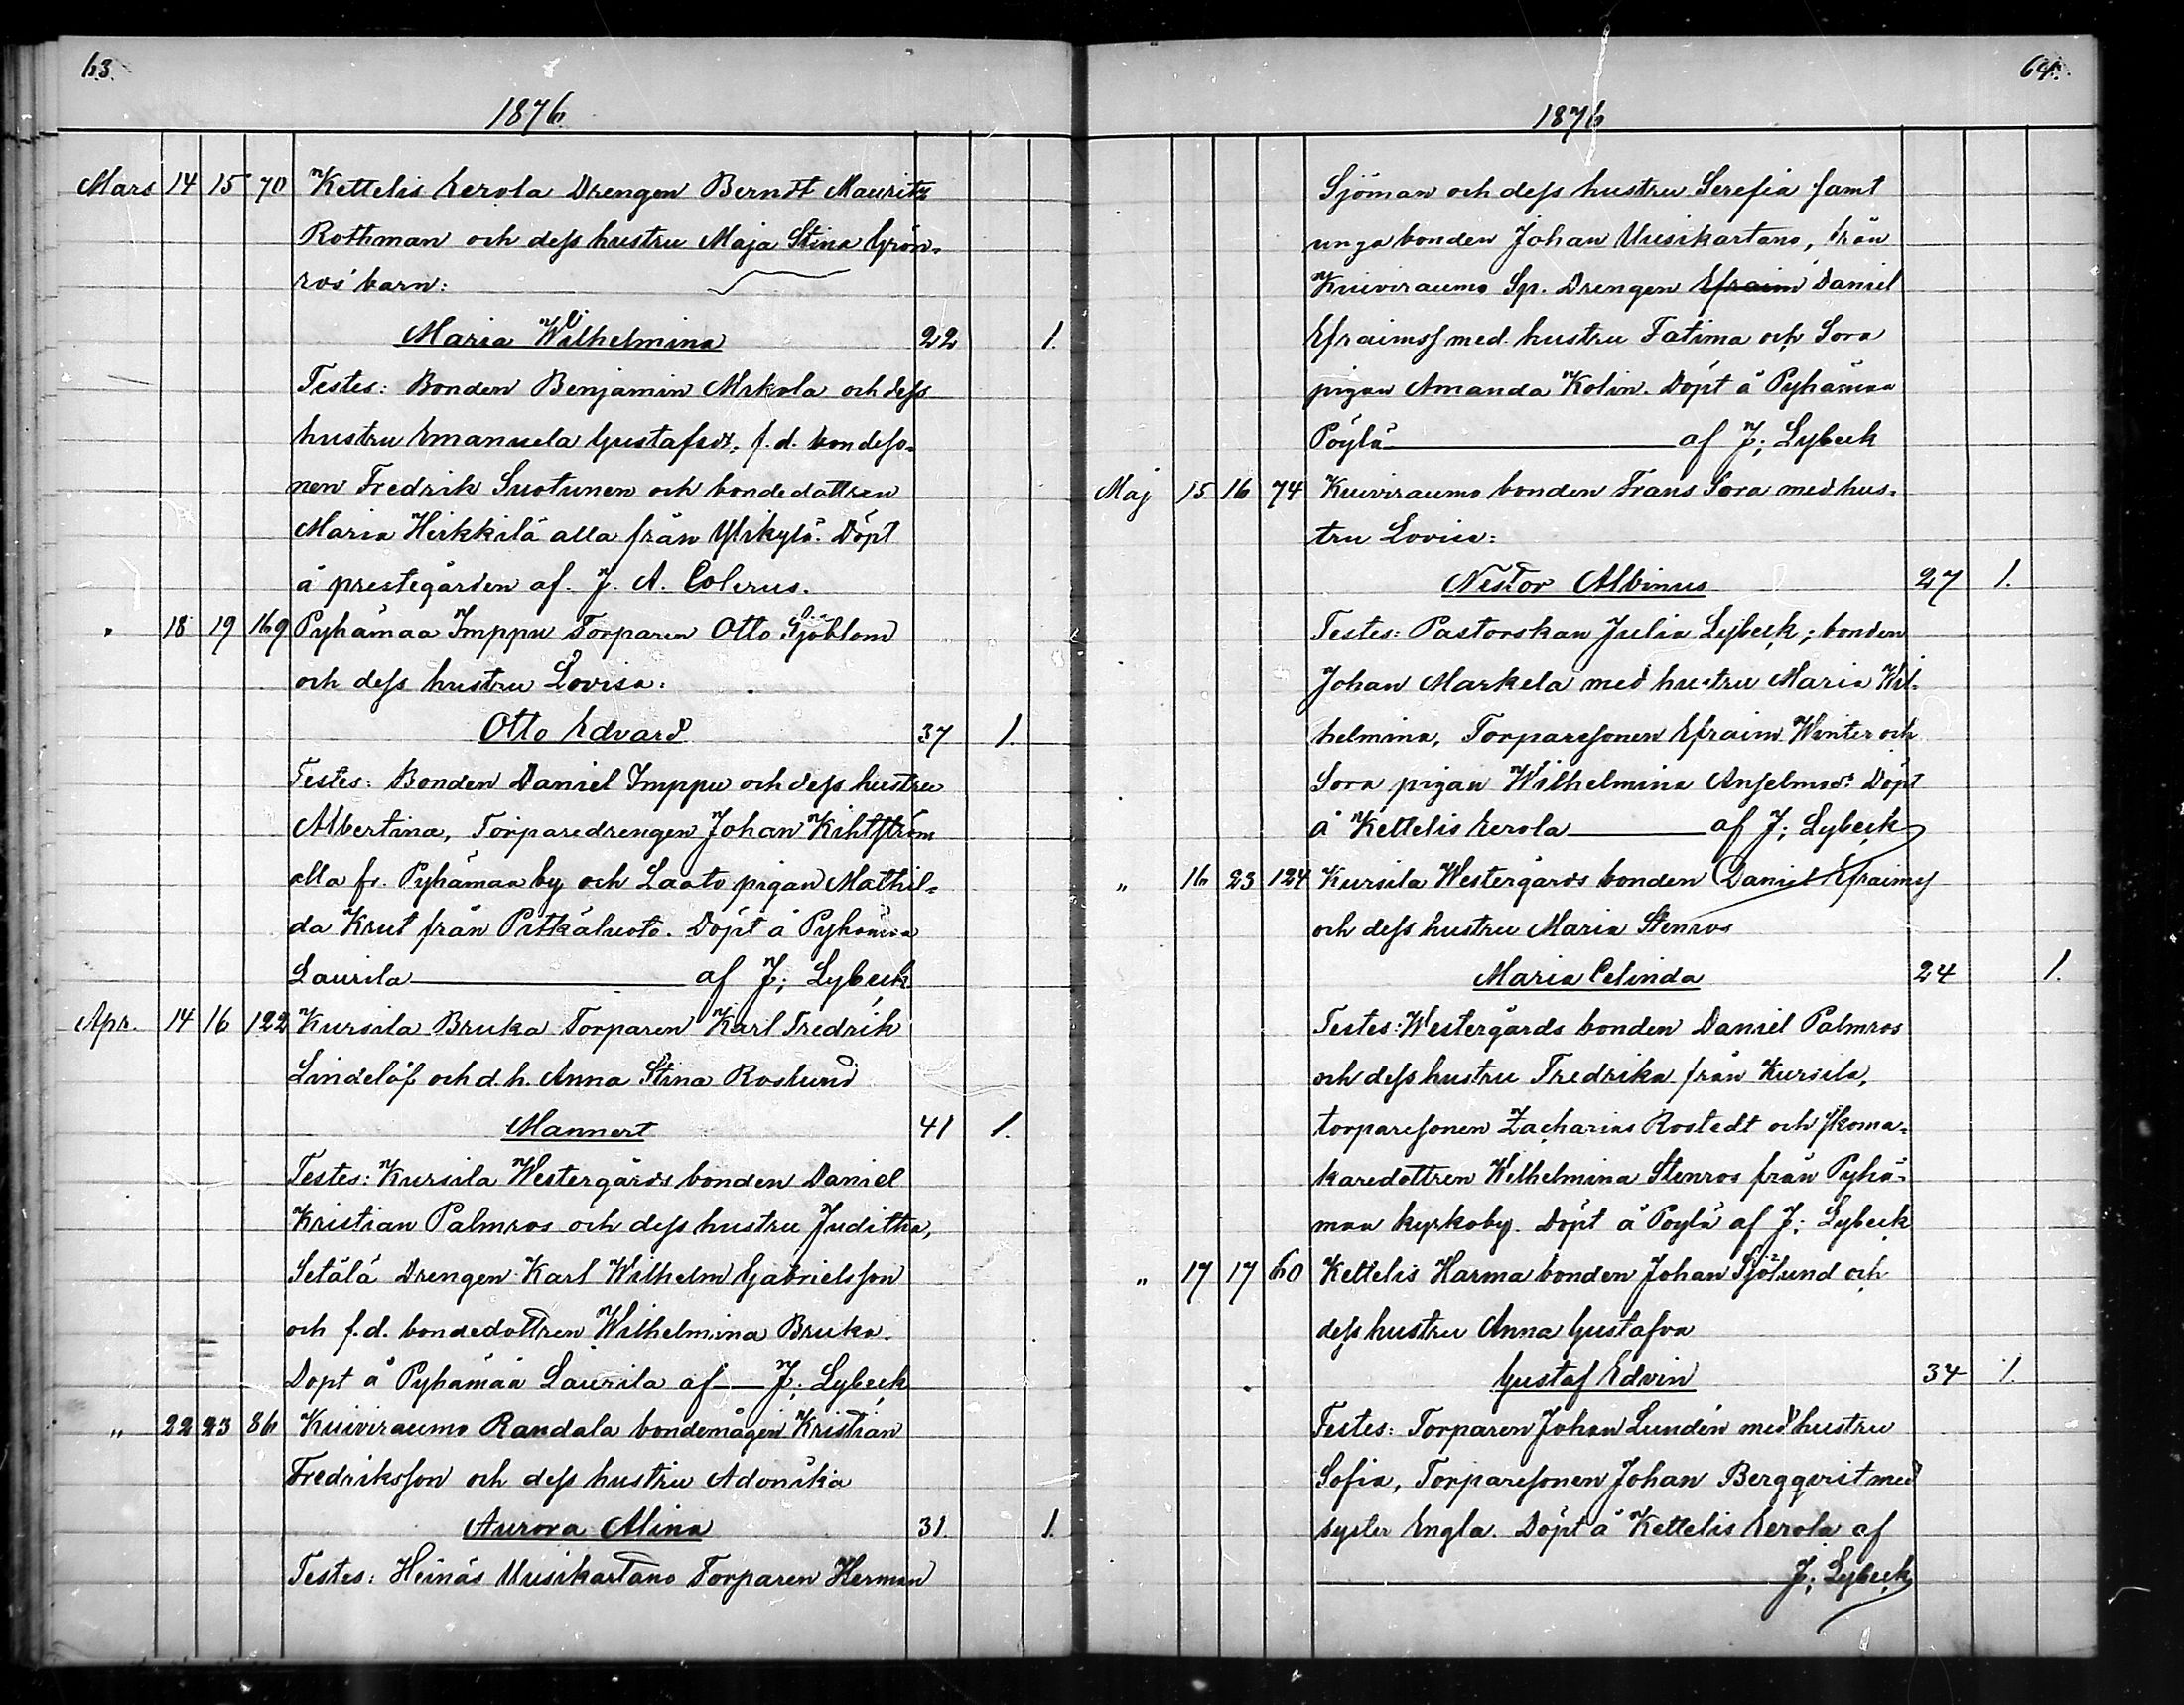 63.
1876.
Mars 14 15 70 Kettelis Eerola Drengen Berndt Mauritz
Rothman och dess hustru Maja Stina Grön-
ros' barn:
Maria Wilhelmina 22 1.
Testes: Bonden Benjamin Mikola och dess
hustru Emanuela Gustafsdr, f.d. bondeso-
nen Fredrik Suotunen och bondedottren
Maria Heikkilä alla från Ylikylä. Döpt
å prestegården af J. A. Colerus.
" 18 19 169 Pyhämaa Imppu Torparen Otto Sjöblom
och dess hustru Lovisa.
Otto Edvard 37 1
Testes: Bonden Daniel Imppu och dess hustru
Albertina, Torparedrengen Johan Kihlström
alla fr. Pyhämaa by och Laato pigan Mathil-
da Krut från Pitkäluoto. Döpt å Pyhämaa
Laurila af J. Lybeck
Apr. 14 16 122 Kursila Bruka Torparen Karl Fredrik
Lindelöf och d.h. Anna Stina Roslund
Mannert 41 1.
Testes: Kursila Westergårds bonden Daniel
Kristian Palmros och dess hustru Juditha,
Setälä Drengen Karl Wilhelm Gabrielsson
och f.d. bondedottren Wilhelmina Bruka.
Döpt å Pyhämaa Laurila af J. Lybeck
" 22 23 86 Kuiviraumo Randala bondemågen Kristian
Fredriksson och dess hustru Adonika
Aurora Alina 31. 1.
Testes: Heinäs Uusikartano Torparen Herman
64.
1876
Sjöman och dess hustru Serefia samt
unga bonden Johan Uusikartano, från
Kuiviraumo Sp. Drengen Efraim Daniel
Efraimss med hustru Fatima och Sora
pigan Amanda Kolin. Döpt å Pyhämaa
Pöylä af J. Lybeck
Maj 15 16 74 Kuiviraumo bonden Frans Sora med hus-
tru Lovisa:
Nestor Albinus 27 1.
Testes: Pastorskan Julia Lybeck; bonden
Johan Markela med hustru Maria Wil-
helmina, Torparesonen Efraim Winter och
Sora pigan Wilhelmina Anselmsdr Döpt
å Kettelis Eerola af J. Lybeck
" 16 23 124 Kursila Westergårds bonden Daniel Efraimss
och dess hustru Maria Stenros
Maria Celinda 24 1.
Testes: Westergårds bonden Daniel Palmros
och dess hustru Fredrika från Kursila,
torparesonen Zacharias Rostedt och skoma-
karedottren Wilhelmina Stenros från Pyhä-
maa kyrkoby. Döpt å Pöylä af J. Lybeck
" 17 17 60 Kettelis Harma bonden Johan Sjölund och
dess hustru Anna Gustafva
Gustaf Edvin 34 1.
Testes: Torparen Johan Lundén med hustru
Sofia, Torparesonen Johan Bergqvist med
syster Engla. Döpt å Kettelis Eerola af
J. Lybeck